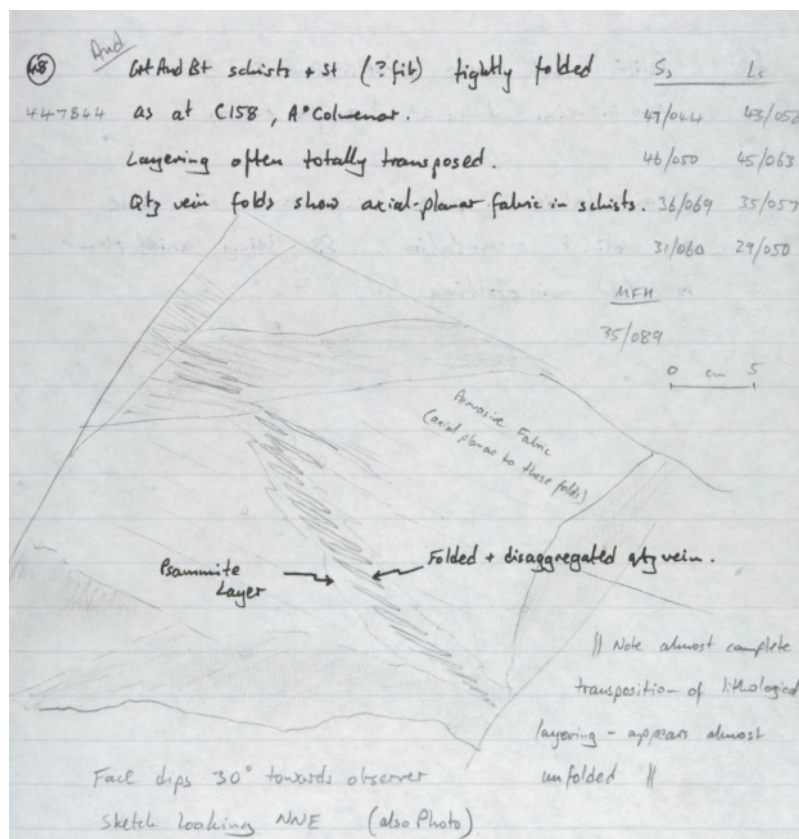 And
48 Gt And Bt schists + St (? fib) tightly folded Ss Ls
447844 as at C158, Aº Colmenar. 47/044 43/056
Layering often totally transposed. 46/050 45/063
Qtz vein folds show axial-planar fabric in schists. 36/069 35/057
31/060 29/050
MFH
35/089
0 cm 5
Pervasive Fabric
(axial planar to these folds)
Psammite Layer
Folded + disaggregated qtz vein.
|| Note almost complete
transposition of lithological
layering - appears almost
unfolded ||
Face dips 30° towards observer
Sketch looking NNE (also Photo).